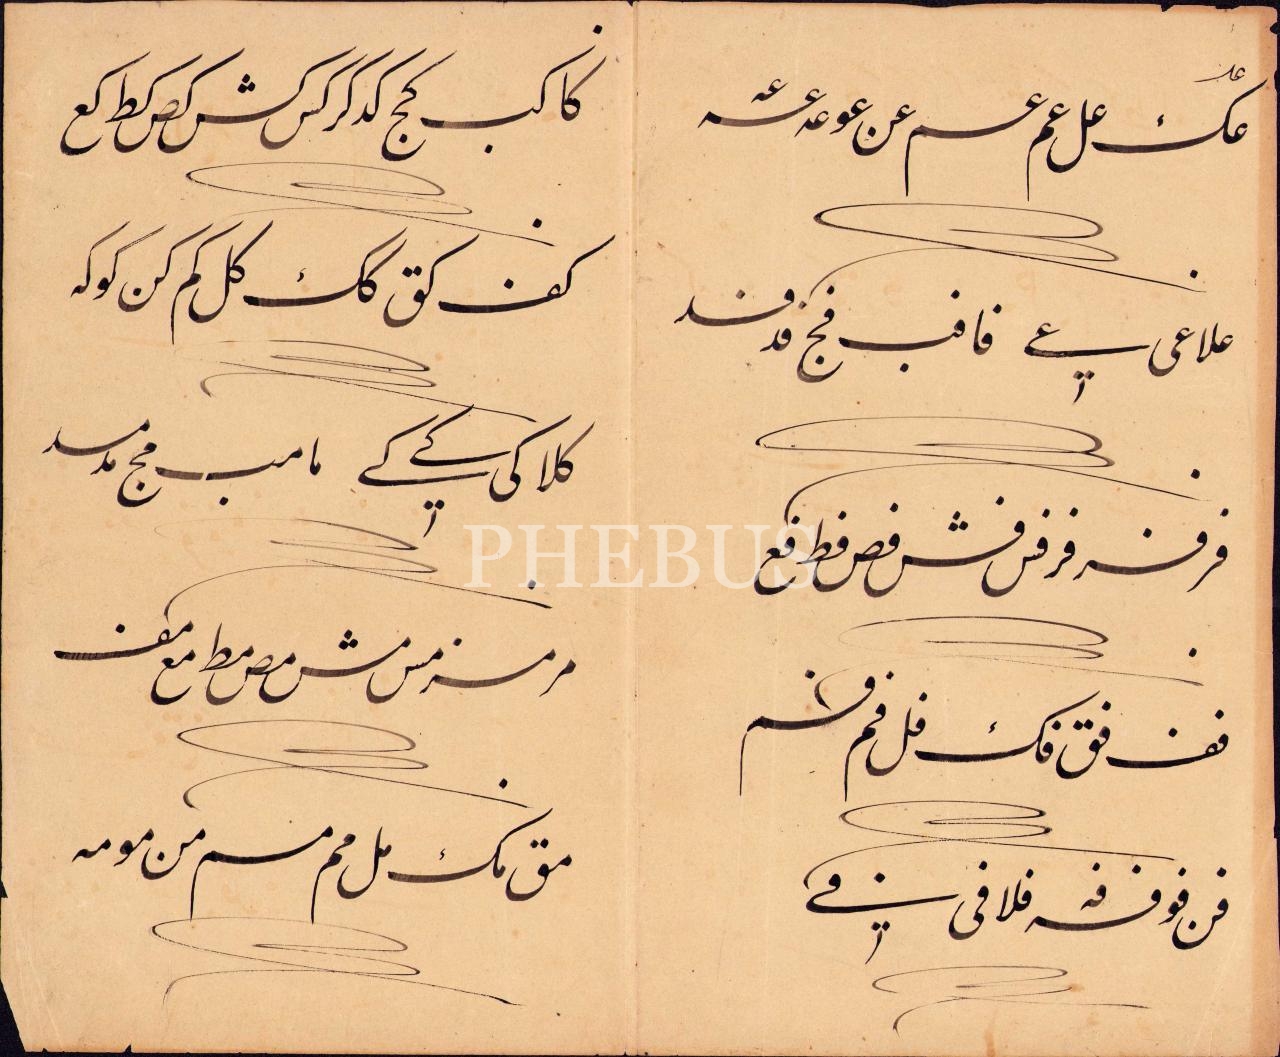 عک عل عم عسم عن عو عه عسه عه
علا عی عے فا فب فج فد فسد
فر فسر فز فس فش فص فط فع
فف فق فک فل فم فسم
فن فو فسه فه فلا فی فے
کا کب کج کد کر کس کش کص کط کع
کف کق کک کل کم کن کو که
کلا کی کے کے ما مب مج مد مسد
مر مسر مس مش مص مط مع مف
مق مک مل مم مسم من مو مه
PHEBUS